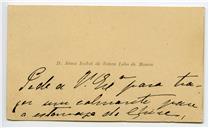 D. Anna Isabel de Souza Lobo de Moura
Pede a V. Exª para tra-
zer um calmante para
o estomago do